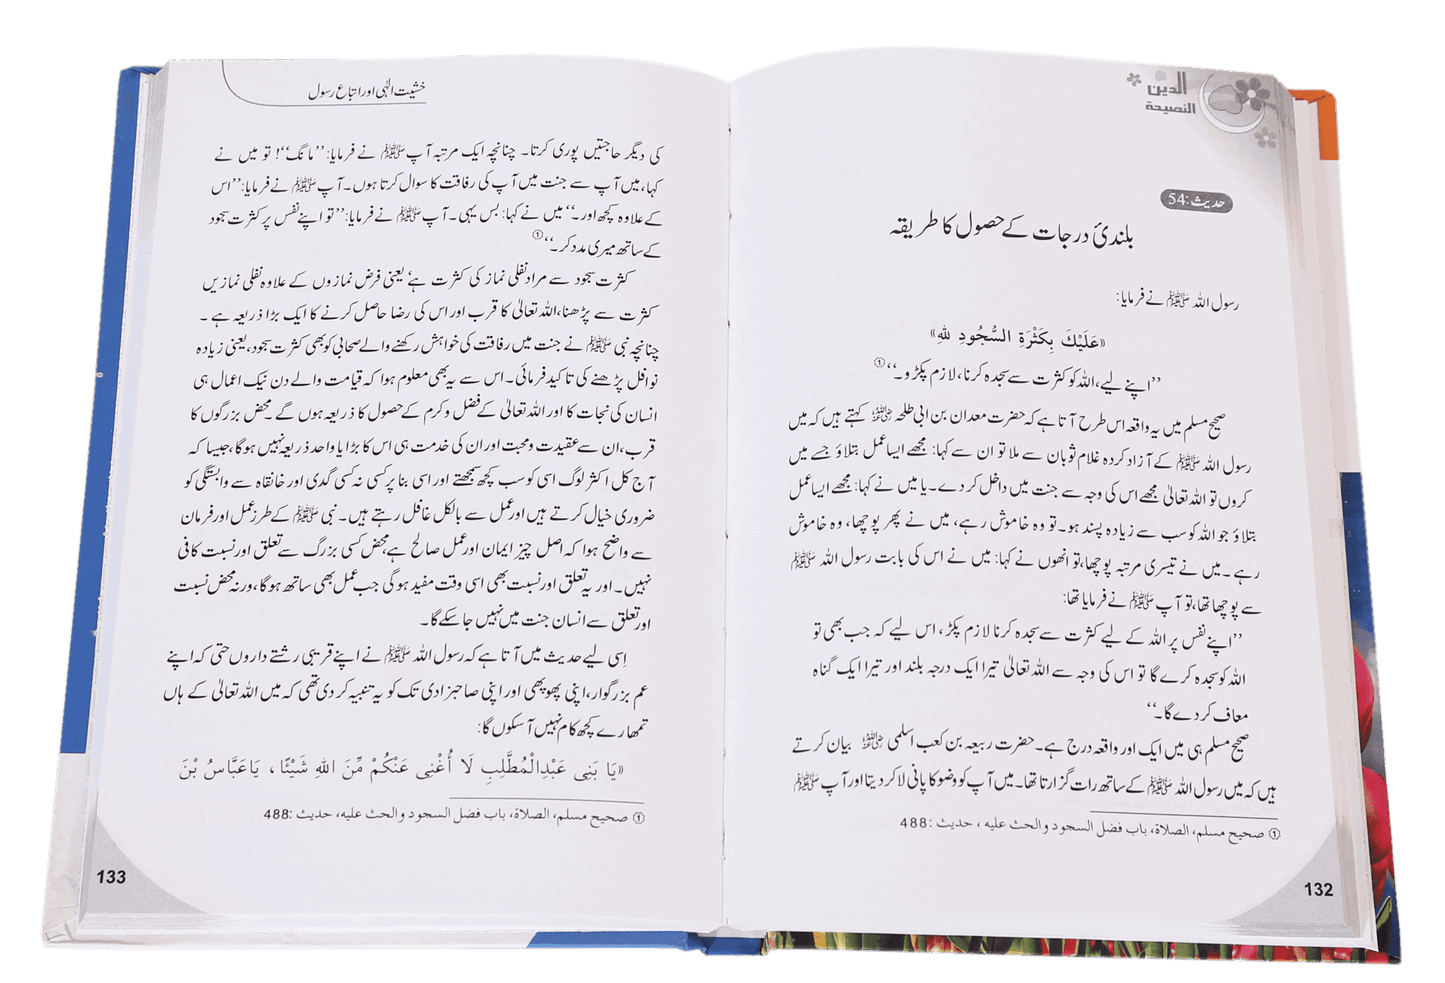 الدین
النصیحة
حدیث:54
بلندیٔ درجات کے حصول کا طریقہ
رسول اللہ ﷺ نے فرمایا:
«عَلَيْكَ بِكَثْرَةِ السُّجُودِ لِلّٰهِ»
’’اپنے لیے، اللہ کو کثرت سے سجدہ کرنا، لازم پکڑو۔‘‘①
صحیح مسلم میں یہ واقعہ اس طرح آتا ہے کہ حضرت معدان بن ابی طلحہ ﷫ کہتے ہیں کہ میں
رسول اللہ ﷺ کے آزاد کردہ غلام ثوبان سے ملا تو ان سے کہا: مجھے ایسا عمل بتلاؤ جسے میں
کروں تو اللہ تعالیٰ مجھے اس کی وجہ سے جنت میں داخل کر دے۔ یا میں نے کہا: مجھے ایسا عمل
بتلاؤ جو اللہ کو سب سے زیادہ پسند ہو۔ تو وہ خاموش رہے، میں نے پھر پوچھا، وہ خاموش
رہے۔ میں نے تیسری مرتبہ پوچھا، تو انھوں نے کہا: میں نے اس کی بابت رسول اللہ ﷺ
سے پوچھا تھا، تو آپ ﷺ نے فرمایا تھا:
’’اپنے نفس پر اللہ کے لیے کثرت سے سجدہ کرنا لازم پکڑ، اس لیے کہ جب بھی تو
اللہ کو سجدہ کرے گا تو اس کی وجہ سے اللہ تعالیٰ تیرا ایک درجہ بلند اور تیرا ایک گناہ
معاف کر دے گا۔‘‘
صحیح مسلم ہی میں ایک اور واقعہ درج ہے۔ حضرت ربیعہ بن کعب اسلمی ﷜ بیان کرتے
ہیں کہ میں رسول اللہ ﷺ کے ساتھ رات گزارتا تھا۔ میں آپ کو وضو کا پانی لا کر دیتا اور آپ ﷺ
① صحیح مسلم، الصلاة، باب فضل السجود والحث علیه، حدیث:488
132
خشیت الٰہی اور اتباع رسول
کی دیگر حاجتیں پوری کرتا۔ چنانچہ ایک مرتبہ آپ ﷺ نے فرمایا: ’’مانگ‘‘! تو میں نے
کہا، میں آپ سے جنت میں آپ کی رفاقت کا سوال کرتا ہوں۔ آپ ﷺ نے فرمایا: ’’اس
کے علاوہ کچھ اور۔‘‘ میں نے کہا: بس یہی۔ آپ ﷺ نے فرمایا: ’’تو اپنے نفس پر کثرت سجود
کے ساتھ میری مدد کر۔‘‘①
کثرت سجود سے مراد نفلی نماز کی کثرت ہے‘ یعنی فرض نمازوں کے علاوہ نفلی نمازیں
کثرت سے پڑھنا، اللہ تعالیٰ کا قرب اور اس کی رضا حاصل کرنے کا ایک بڑا ذریعہ ہے۔
چنانچہ نبی ﷺ نے جنت میں رفاقت کی خواہش رکھنے والے صحابی کو بھی کثرت سجود، یعنی زیادہ
نوافل پڑھنے کی تاکید فرمائی۔ اس سے یہ بھی معلوم ہوا کہ قیامت والے دن نیک اعمال ہی
انسان کی نجات کا اور اللہ تعالیٰ کے فضل و کرم کے حصول کا ذریعہ ہوں گے۔ محض بزرگوں کا
قرب، ان سے عقیدت و محبت اور ان کی خدمت ہی اس کا بڑا یا واحد ذریعہ نہیں ہوگا، جیسا کہ
آج کل اکثر لوگ اسی کو سب کچھ سمجھتے اور اسی بنا پر کسی نہ کسی گدی اور خانقاہ سے وابستگی کو
ضروری خیال کرتے ہیں اور عمل سے بالکل غافل رہتے ہیں۔ نبی ﷺ کے طرز عمل اور فرمان
سے واضح ہوا کہ اصل چیز ایمان اور عمل صالح ہے، محض کسی بزرگ سے تعلق اور نسبت کافی
نہیں۔ اور یہ تعلق اور نسبت بھی اسی وقت مفید ہوگی جب عمل بھی ساتھ ہوگا، ورنہ محض نسبت
اور تعلق سے انسان جنت میں نہیں جا سکے گا۔
اِسی لیے حدیث میں آتا ہے کہ رسول اللہ ﷺ نے اپنے قریبی رشتے داروں حتی کہ اپنے
عم بزرگوار، اپنی پھوپھی اور اپنی صاحبزادی تک کو یہ تنبیہ کر دی تھی کہ میں اللہ تعالیٰ کے ہاں
تمھارے کچھ کام نہیں آ سکوں گا:
«يَا بَنِي عَبْدِالْمُطَّلِبِ لَا أُغْنِي عَنْكُمْ مِّنَ اللّٰهِ شَيْئًا، يَاعَبَّاسُ بْنَ
① صحیح مسلم، الصلاة، باب فضل السجود والحث علیه، حدیث:488
133